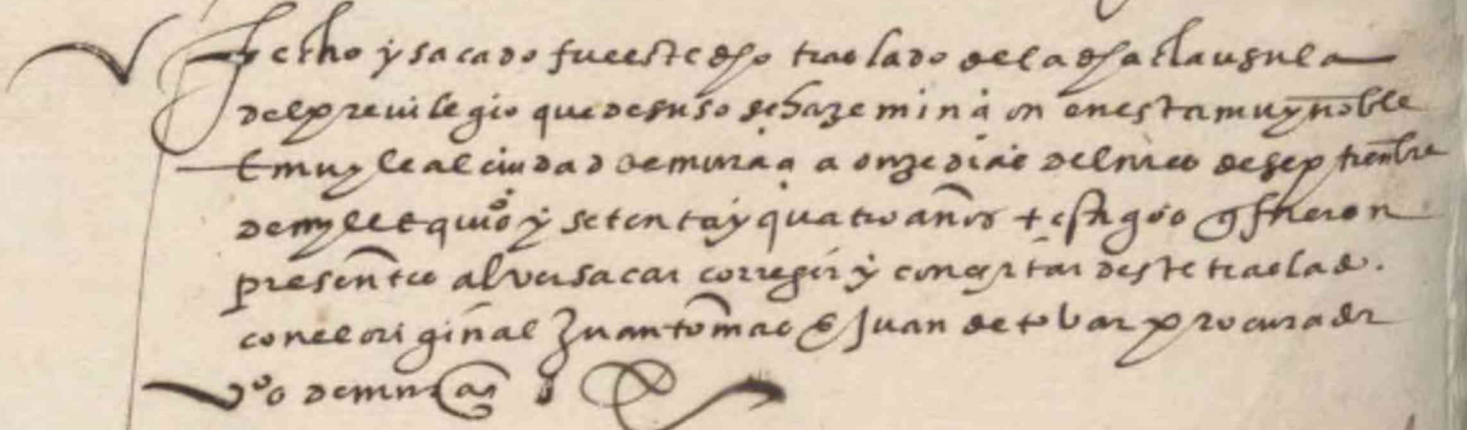 fecho y sacado fue este dho traslado de la dha clausula
del previlegio que de suso se haze minçion en esta muy noble
E muy leal ciudad de murçia a onze dias del mes de septienbre
de myll E quios y setenta y quatro años testigos q fueron
presentes al ver sacar corregir y conçertar deste traslado
con el original Juan tomas E Juan de tobar procurador
vos de murçia